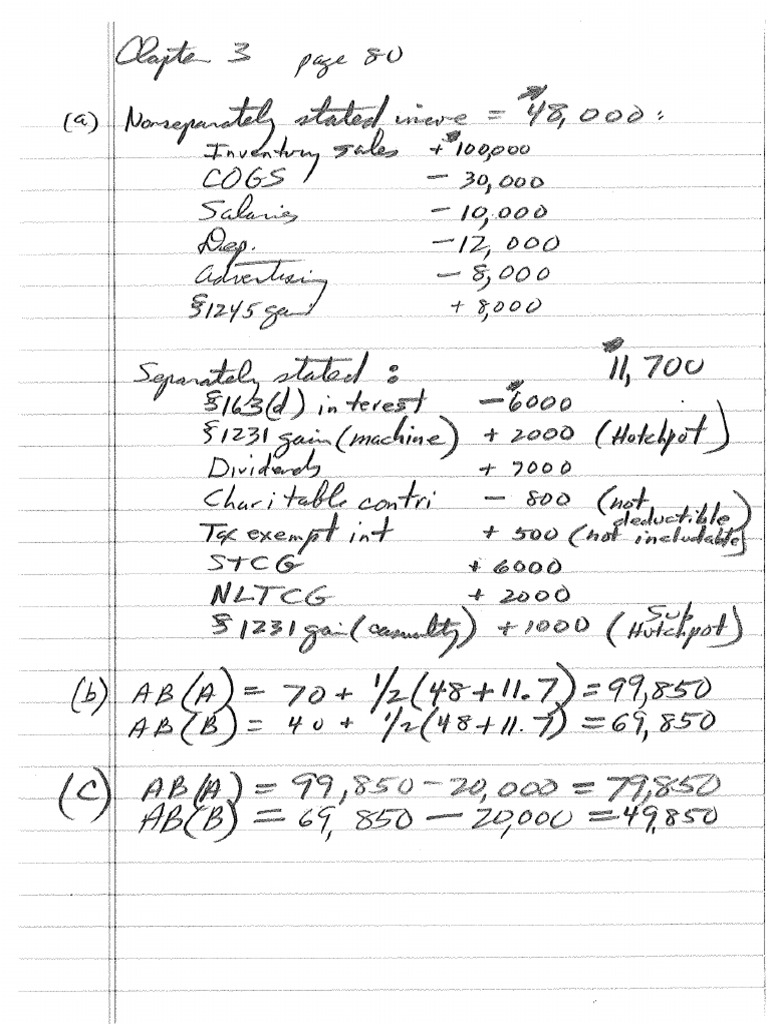 Chapter 3 page 80
(a) Nonseparately stated income = $48,000:
Inventory sales + $100,000
COGS - 30,000
Salaries - 10,000
Dep. - 12,000
Advertising - 8,000
§1245 gain + 8,000
Separately stated: $11,700
§163(d) interest - $6000
§1231 gain (machine) + 2000 (Hotchpot)
Dividends + 7000
Charitable contri - 800 (not deductible)
Tax exempt int + 500 (not includable)
STCG + 6000
NLTCG + 2000
§1231 gain (casualty) + 1000 (Sub Hotchpot)
(b) AB(A) = 70 + 1/2(48+11.7) = 99,850
AB(B) = 40 + 1/2(48+11.7) = 69,850
(c) AB(A) = 99,850 - 20,000 = 79,850
AB(B) = 69,850 - 20,000 = 49,850